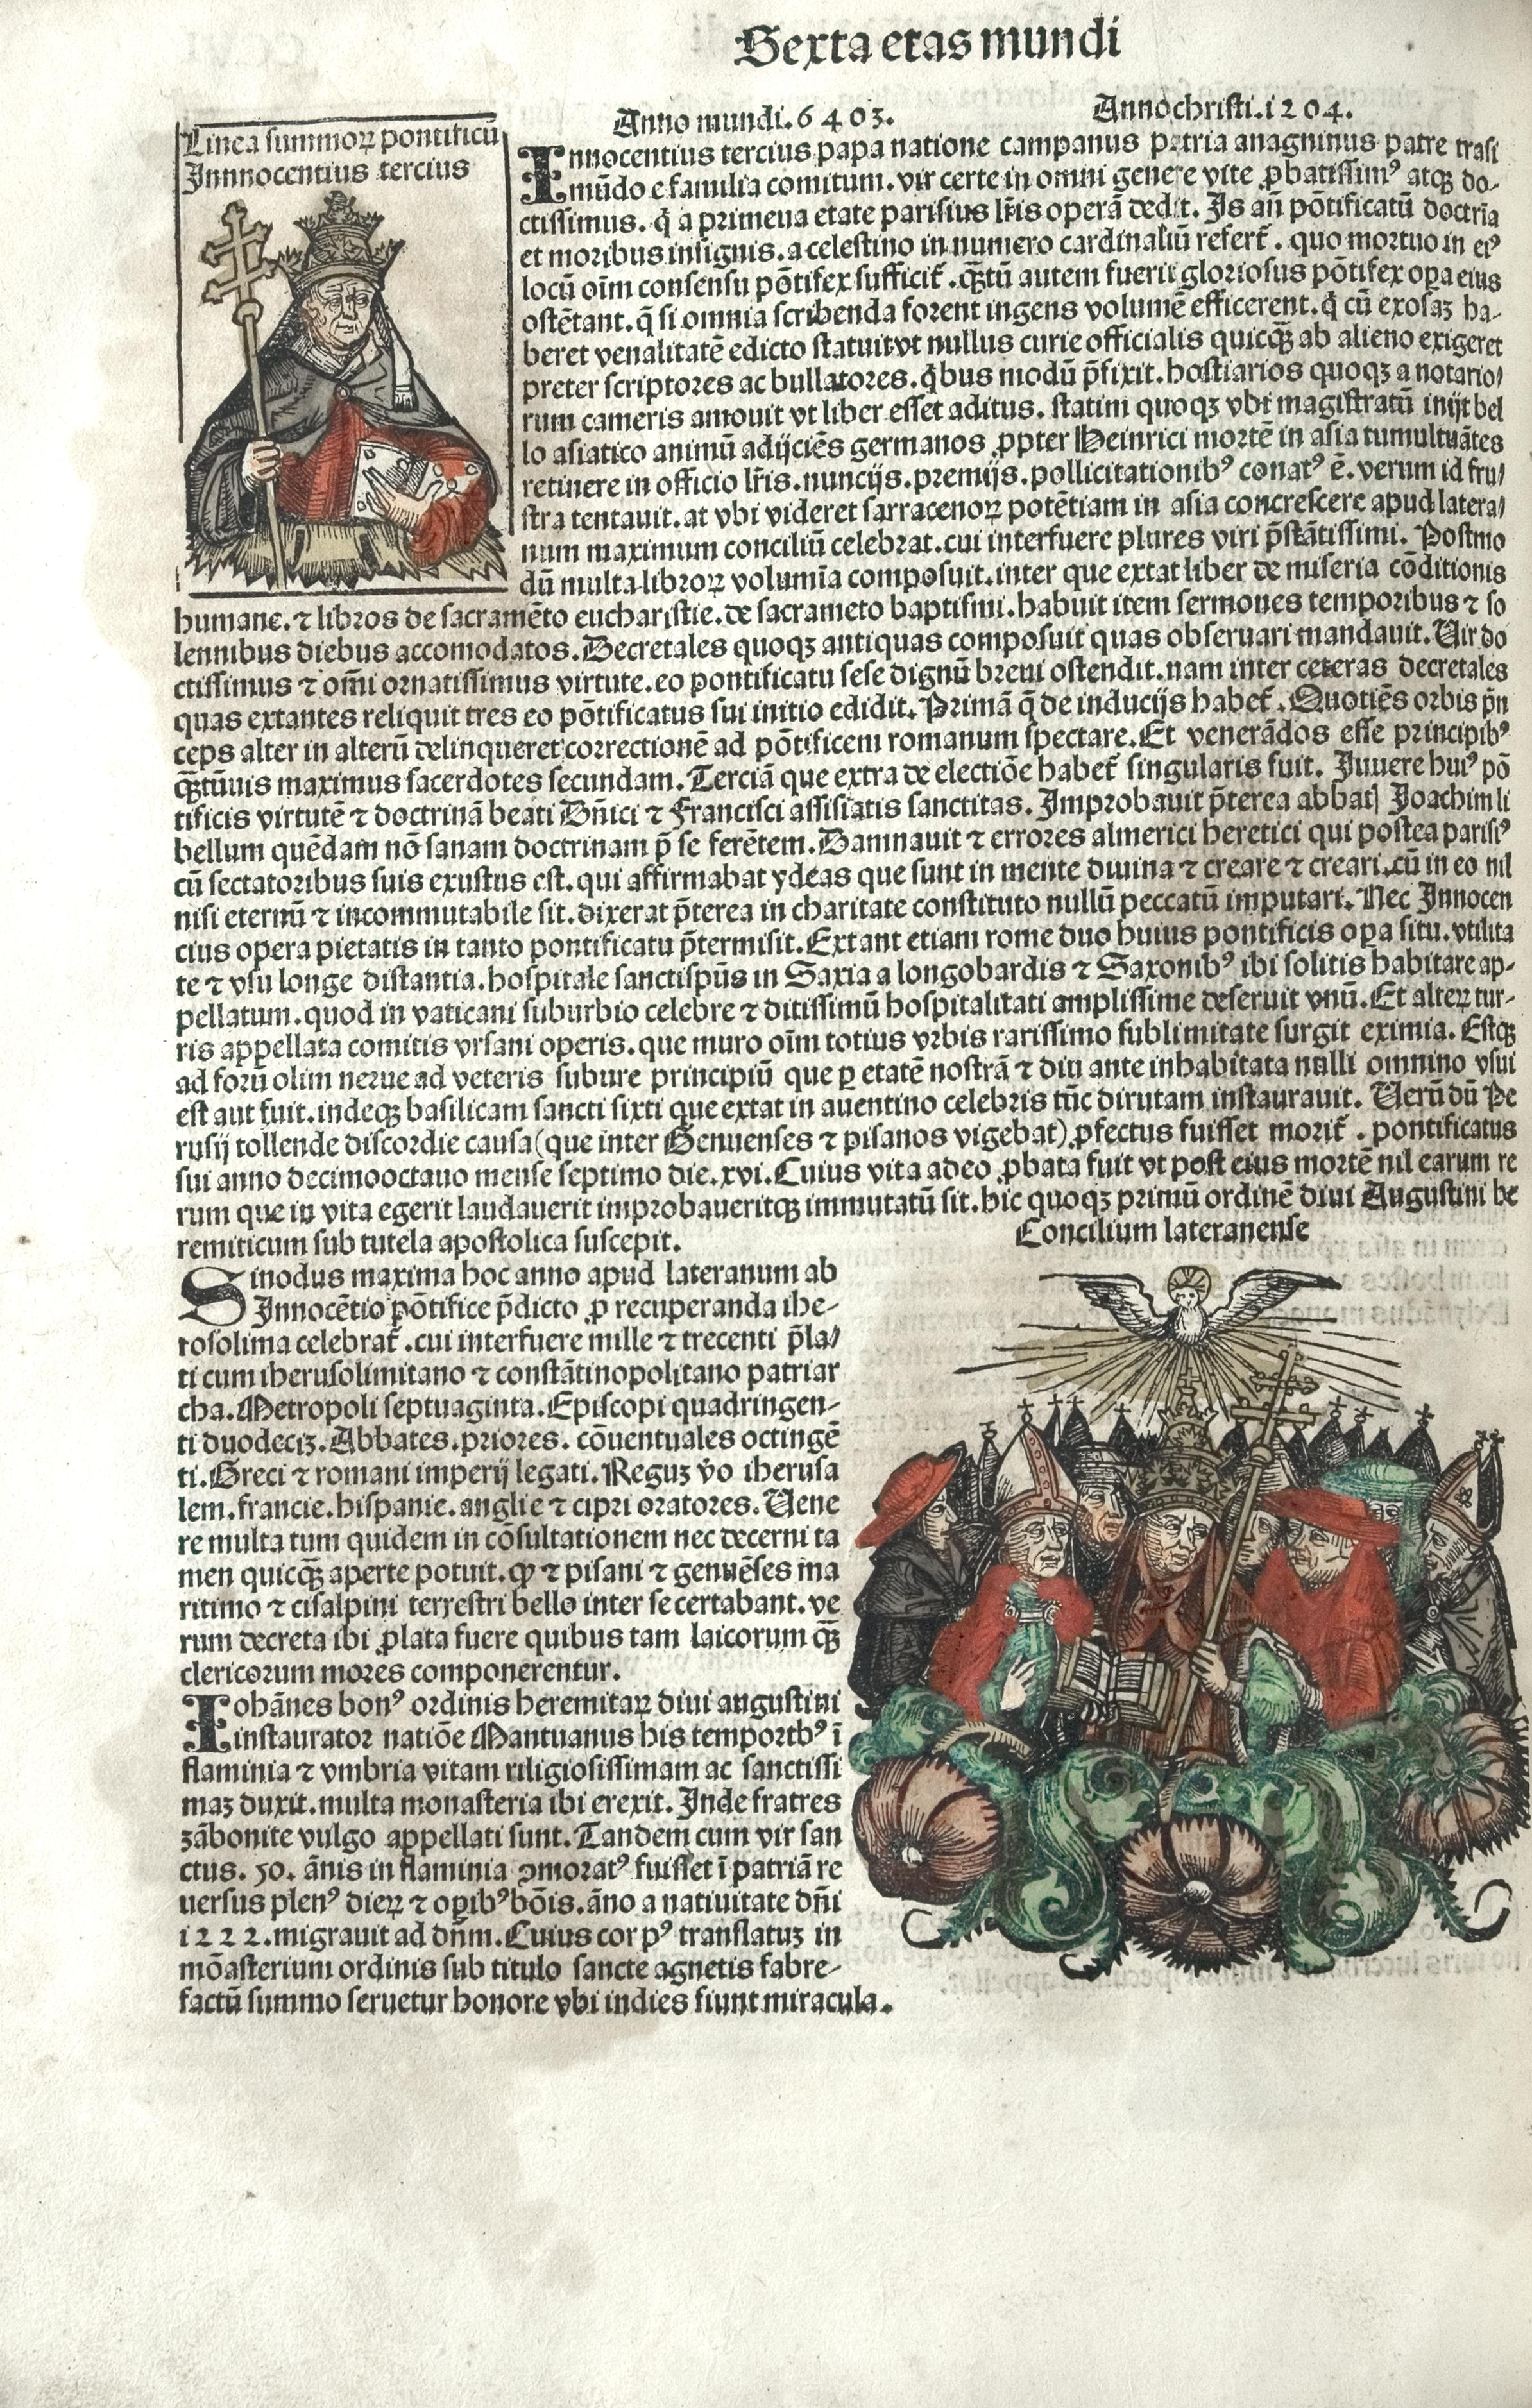 Sexta etas mundi
Anno mundi.6403.
Anno christi.1204.
Linea summoꝝ pontificū
Innnocentius tercius
Innocentius tercius papa natione campanus patria anagninus patre trasi
mūdo e familia comitum. vir certe in omni genere vite ꝓbatissimꝰ atqꝫ do-
ctissimus. q̇ a primeua etate parisius lr̄is operā dedit. Is añ pōtificatū doctrīa
et moribus insignis. a celestino in numero cardinaliū referẗ. quo mortuo in eiꝰ
locū oīm consensu pōtifex sufficiẗ. qꝫ̄tū autem fuerit gloriosus pōtifex oꝑa eius
ostētant. q̄ si omnia scribenda forent ingens volumē efficerent. q̇ cū exosaꝫ ha-
beret venalitatē edicto statuit vt nullus curie officialis quicqꝫ̄ ab alieno exigeret
preter scriptores ac bullatores. q̇bus modū p̄fixit. hostiarios quoqꝫ a notario/
rum cameris amouit vt liber esset aditus. statim quoqꝫ vbi magistratū inijt bel
lo asiatico animū adijciēs germanos ꝓpter Heinrici mortē in asia tumultuātes
retinere in officio lr̄is. nuncijs. premijs. pollicitationibꝰ conatꝰ ē. verum id fru/
stra tentauit. at vbi videret sarracenoꝝ potētiam in asia concrescere apud latera/
num maximum conciliū celebrat. cui interfuere plures viri p̄stātissimi. Postmo
dū multa libroꝝ volumīa composuit. inter que extat liber de miseria cōditionis
humane. ⁊ libros de sacramēto eucharistie. de sacrameto baptismi. habuit item sermones temporibus ⁊ so
lennibus diebus accomodatos. Decretales quoqꝫ antiquas composuit quas obseruari mandauit. Uir do
ctissimus ⁊ om̄i ornatissimus virtute. eo pontificatu sese dignū breui ostendit. nam inter ceteras decretales
quas extantes reliquit tres eo pōtificatus sui initio edidit. Primā q̄ de inducijs habeẗ. Quotiēs orbis p̄n
ceps alter in alterū delinqueret correctionē ad pōtificem romanum spectare. Et venerādos esse principibꝰ
qꝫ̄tūuis maximus sacerdotes secundam. Terciā que extra de electiōe habeẗ singularis fuit. Iuuere huiꝰ pō
tificis virtutē ⁊ doctrinā beati Dn̄ici ⁊ Francisci assisiatis sanctitas. Improbauit p̄terea abbat] Joachim li
bellum quēdam nō sanam doctrinam p̄ se ferētem. Damnauit ⁊ errores almerici heretici qui postea parisiꝰ
cū sectatoribus suis exustus est. qui affirmabat ydeas que sunt in mente diuina ⁊ creare ⁊ creari. cū in eo nil
nisi eternū ⁊ incommutabile sit. dixerat p̄terea in charitate constituto nullū peccatū imputari. Nec Innocen
cius opera pietatis in tanto pontificatu p̄termisit. Extant etiam rome duo huius pontificis oꝑa situ. vtilita
te ⁊ vsu longe distantia. hospitale sanctispūs in Saxia a longobardis ⁊ Saxonibꝰ ibi solitis habitare ap-
pellatum. quod in vaticani suburbio celebre ⁊ ditissimū hospitalitati amplissime deseruit vnū. Et alteꝝ tur-
ris appellata comitis vrsani operis. que muro oīm totius vrbis rarissimo sublimitate surgit eximia. Estqꝫ
ad forū olim nerue ad veteris subure principiū que ꝑ etatē nostrā ⁊ diu ante inhabitata nulli omnino vsui
est aut fuit. indeqꝫ basilicam sancti sixti que extat in auentino celebris tūc dirutam instaurauit. Uerū dū Pe
rusij tollende discordie causa (que inter Genuenses ⁊ pisanos vigebat) ꝓfectus fuisset moriẗ. pontificatus
sui anno decimooctauo mense septimo die. xvi. Cuius vita adeo ꝓbata fuit vt post eius mortē nil earum re
rum que in vita egerit laudauerit improbaueritqꝫ immutatū sit. hic quoqꝫ primū ordinē diui Augustini he
remiticum sub tutela apostolica suscepit.
Concilium lateranense
Sinodus maxima hoc anno apud lateranum ab
Innocētio pōtifice p̄dicto ꝓ recuperanda ihe-
rosolima celebraẗ. cui interfuere mille ⁊ trecenti p̄la/
ti cum iherusolimitano ⁊ constātinopolitano patriar
cha. Metropoli septuaginta. Episcopi quadringen-
ti duodeciꝫ. Abbates. priores. cōuentuales octingē
ti. Greci ⁊ romani imperij legati. Reguꝫ v̊o iherusa
lem. francie. hispanie. anglie ⁊ cipri oratores. Uene
re multa tum quidem in cōsultationem nec decerni ta
men quicqꝫ̄ aperte potuit. ꝙ ⁊ pisani ⁊ genuēses ma
ritimo ⁊ cisalpini terrestri bello inter se certabant. ve
rum decreta ibi ꝓlata fuere quibus tam laicorum qꝫ̄
clericorum mores componerentur.
Iohānes bonꝰ ordinis heremitaꝝ diui augustini
instaurator natiōe Mantuanus his temporibꝰ ī
flaminia ⁊ vmbria vitam riligiosissimam ac sanctissi
maꝫ duxit. multa monasteria ibi erexit. Inde fratres
zābonite vulgo appellati sunt. Tandem cum vir san
ctus. 50. ānis in flaminia ꝯmoratꝰ fuisset ī patriā re
uersus plenꝰ dieꝝ ⁊ oꝑibꝰ bōis. āno a natiuitate dn̄i
1222. migrauit ad dn̄m. Cuius corpꝰ translatuꝫ in
mōasterium ordinis sub titulo sancte agnetis fabre-
factū summo seruetur honore vbi indies fiunt miracula.